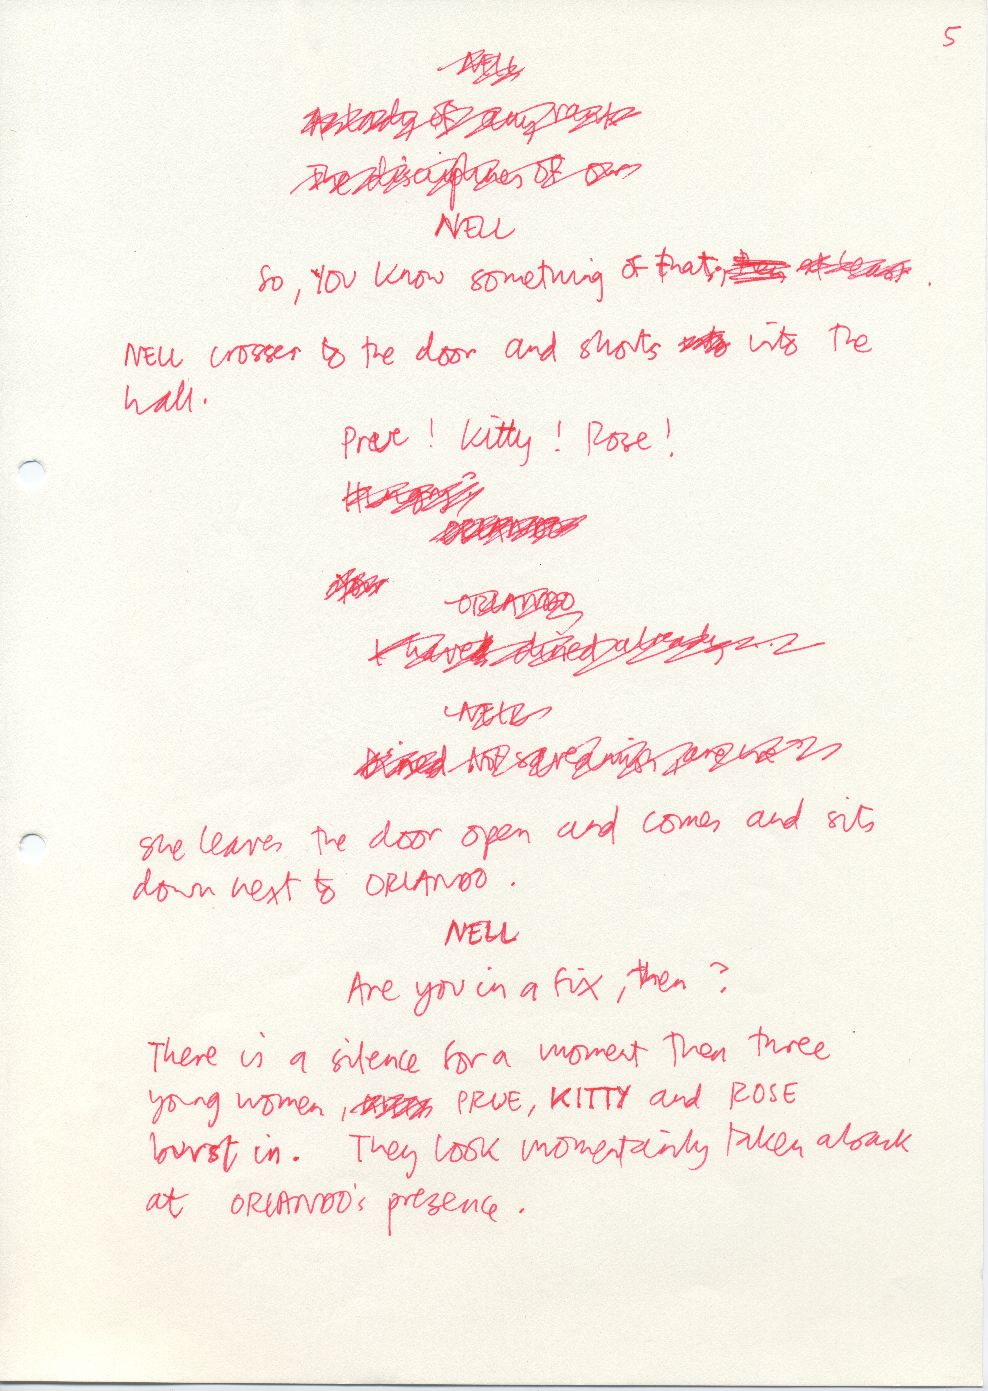 5
NELL
The disciplines of our
NELL
So, you know something of that, at least.
NELL crosses to the door and shouts into the
hall.
Prue! Kitty! Rose!
Hungry?
ORLANDO
ORLANDO
I have dined already...
NELL
Dined
she leaves the door open and comes and sits
down next to ORLANDO.
NELL
Are you in a fix, then?
There is a silence for a moment then three
young women, PRUE, KITTY and ROSE
burst in. They look momentarily taken aback
at ORLANDO's presence.